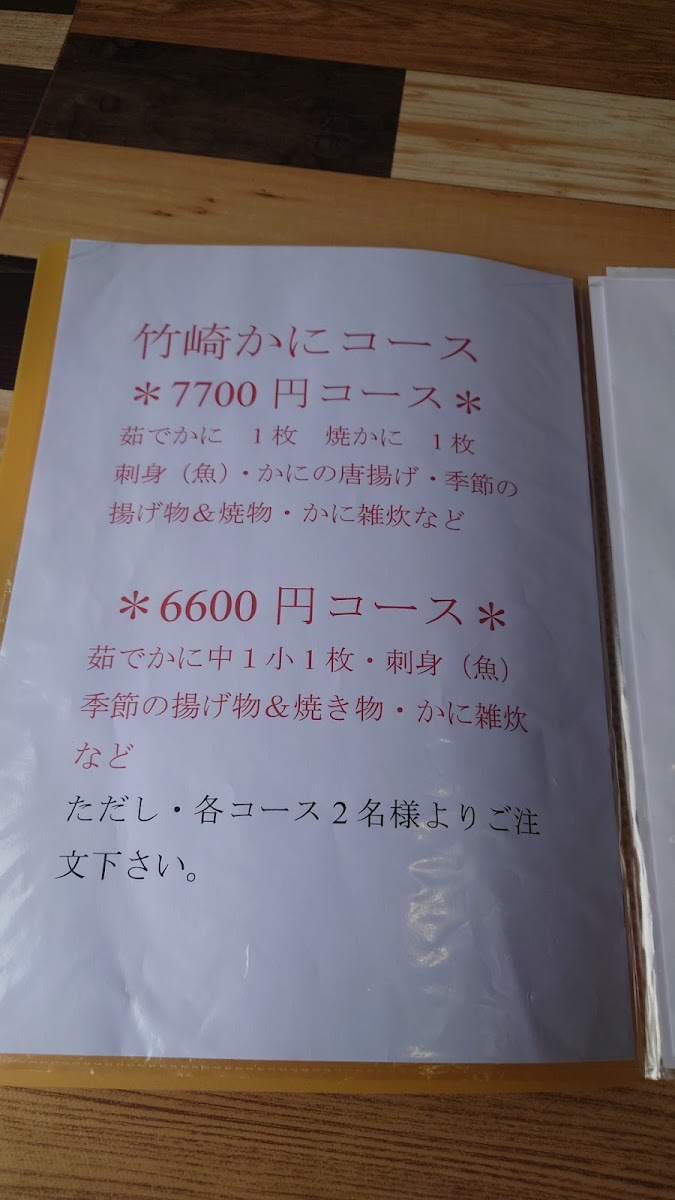 竹崎かにコース
＊7700 円コース＊
茹でかに　1枚　焼かに　1枚
刺身（魚）・かにの唐揚げ・季節の
揚げ物＆焼物・かに雑炊など
＊6600 円コース＊
茹でかに中1小1枚・刺身（魚）
季節の揚げ物＆焼き物・かに雑炊
など
ただし・各コース2名様よりご注
文下さい。